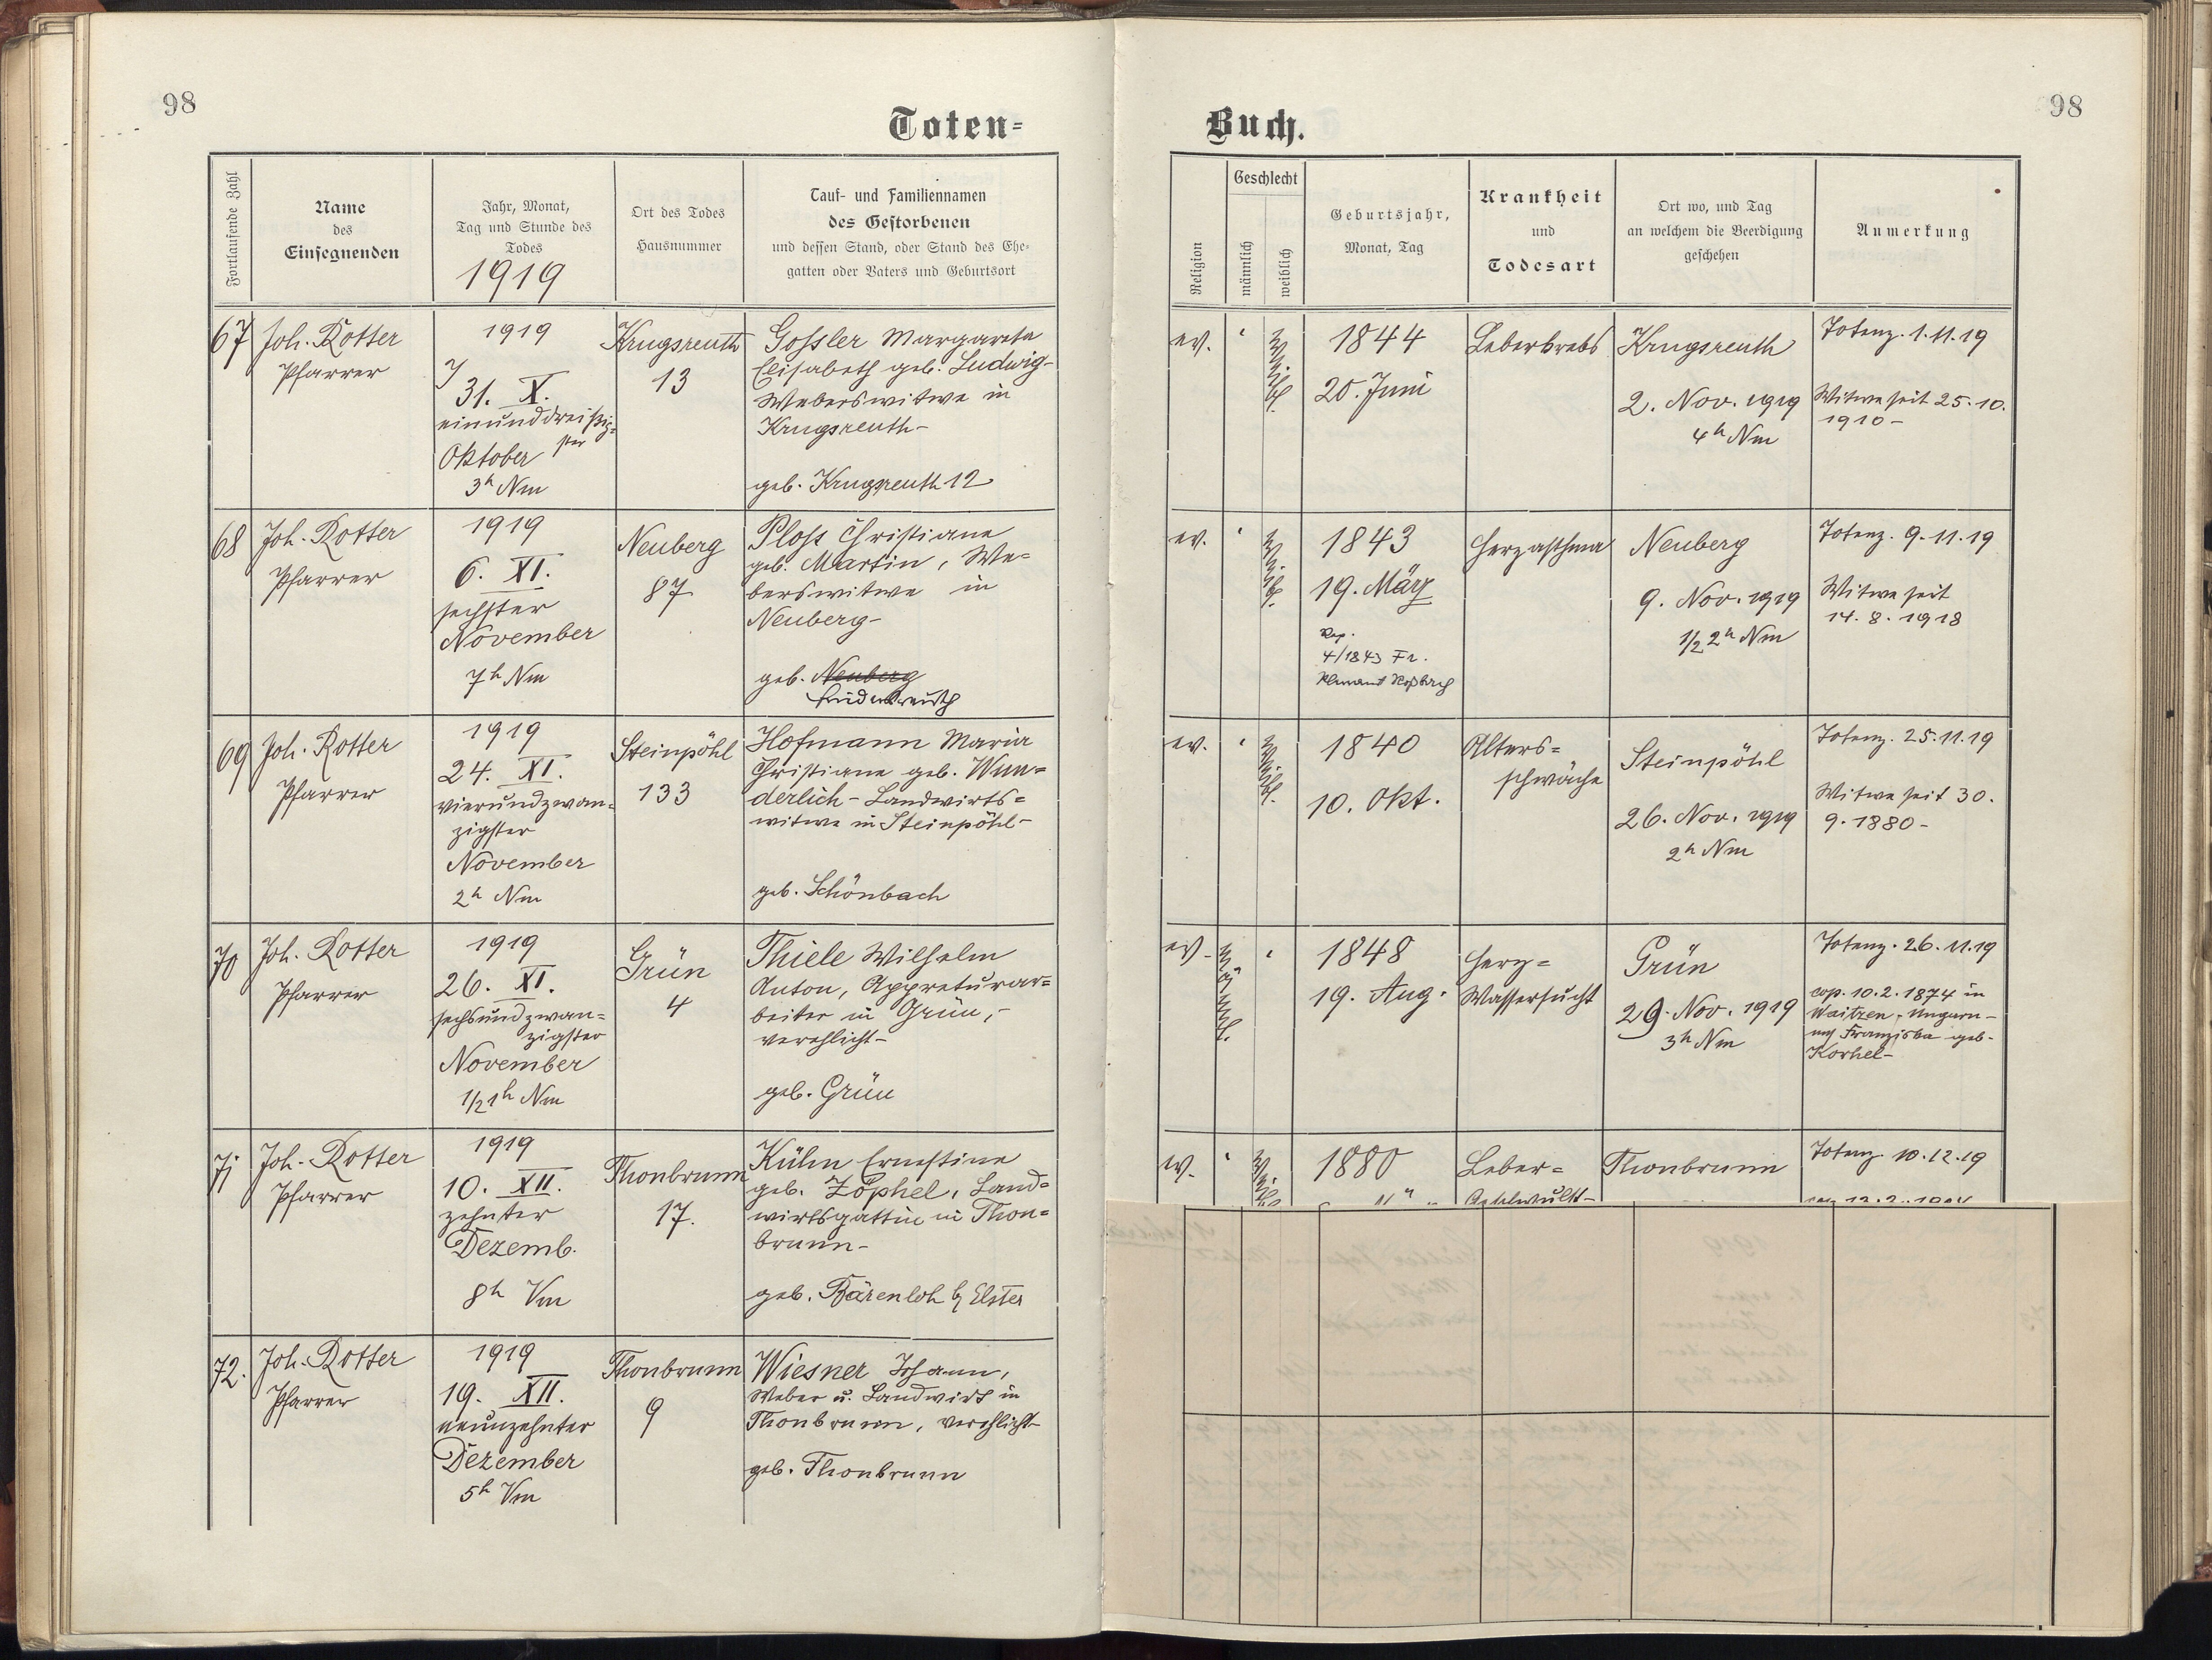 98
Toten-
Fortlaufende Zahl
Name
des
Einsegnenden
Jahr, Monat,
Tag und Stunde des
Todes
1919
Ort des Todes
Hausnummer
Tauf- und Familiennamen
des Gestorbenen
und dessen Stand, oder Stand des Ehe-
gatten oder Vaters und Geburtsort
67
Joh. Rotter
Pfarrer
1919
31. X.
einunddreißig-
ster
Oktober
3h Nm
Krugsreuth
13
Gossler Margareta
Elisabeth geb. Ludwig-
Weberswitwe in
Krugsreuth-
geb. Krugsreuth 12
68
Joh. Rotter
Pfarrer
1919
6. XI.
sechster
November
7h Nm
Neuberg
87
Ploss Christiane
geb. Martin, We-
berswitwe in
Neuberg-
geb. Neuberg
69
Joh. Rotter
Pfarrer
1919
24. XI.
vierundzwan-
zigster
November
2h Nm
Steinpöhl
133
Hofmann Maria
Christiane geb. Wun-
derlich - Landwirts-
witwe in Steinpöhl-
geb. Schönbach
70
Joh. Rotter
Pfarrer
1919
26. XI.
sechsundzwan-
zigster
November
1/2 1h Nm
Grün
4
Thiele Wilhelm
Anton, Appreturar-
beiter in Grün,-
verehlicht-
geb. Grün
71
Joh. Rotter
Pfarrer
1919
10. XII.
zehnter
Dezemb.
8h Vm
Thonbrunn
17.
Kühn Ernestine
geb. Zöphel, Land-
wirtsgattin in Thon-
brunn-
geb. Bärenloh b/ Elster
72.
Joh. Rotter
Pfarrer
1919
19. XII.
neunzehnter
Dezember
5h Vm
Thonbrunn
9
Wiesner Johann,
Weber u. Landwirt in
Thonbrunn, verehlicht-
geb. Thonbrunn
98
Buch.
Religion
Geschlecht
männlich
weiblich
Geburtsjahr,
Monat, Tag
Krankheit
und
Todesart
Ort wo, und Tag
an welchem die Beerdigung
geschehen
Anmerkung
ev.
weibl.
1844
20. Juni
Leberkrebs
Krugsreuth
2. Nov. 1919
4h Nm
Totenz. 1.11.19
Witwe seit 25.10.
1910-
ev.
weibl.
1843
19. März
4/1843 Fr.
Herzasthma
Neuberg
9. Nov. 1919
1/2 2h Nm
Totenz. 9.11.19
Witwe seit
14.8.1918
ev.
weibl.
1840
10. Okt.
Alters-
schwäche
Steinpöhl
26. Nov. 1919
2h Nm
Totenz. 25.11.19
Witwe seit 30.
9.1880-
ev.
männl.
1848
19. Aug.
Herz-
Wassersucht
Grün
29. Nov. 1919
3h Nm
Totenz. 26.11.19
cop. 10.2.1874 in
Waitzen, Ungarn-
mit Franziska geb.
Korhel-
ev.
weibl.
1880
Leber-
Thonbrunn
Totenz. 10.12.19